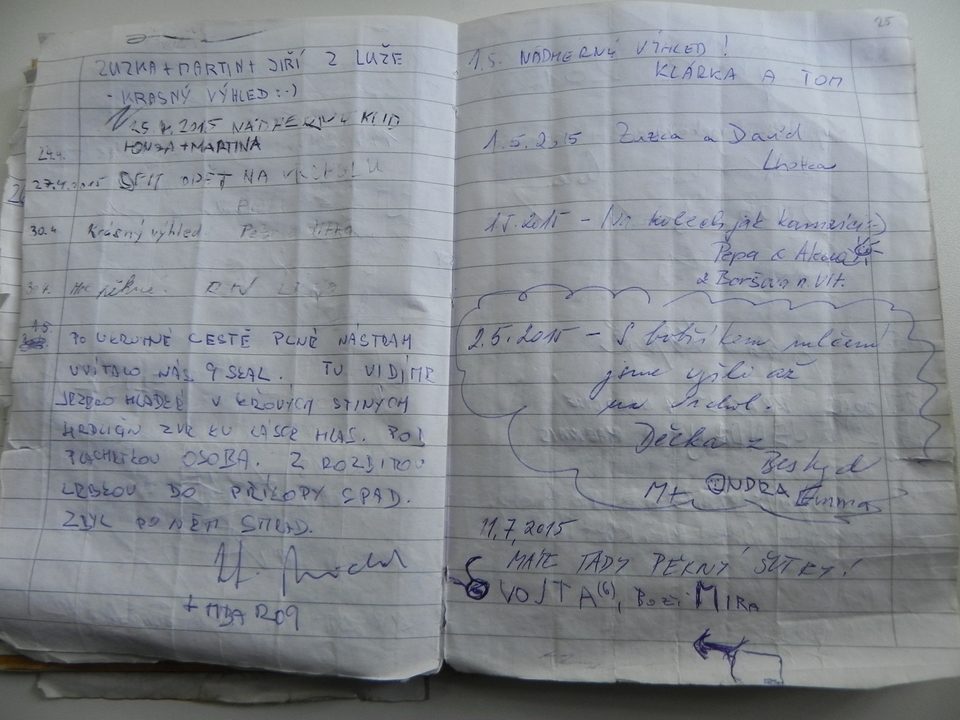 ZUZKA + MARTIN + JIŘÍ Z LUŽE
- KRASNÝ VÝHLED :-)
25.4.2015 NÁDHERNÝ KLID
24.4. HONZA + MARTINA
27.4.2015 OPĚT NA VRCHOLU
30.4. Krásný výhled
1.5.
PO UKRUTNÉ CESTĚ PLNÉ NÁSTRAH
UVÍTALO NÁS 9 SKAL. TU VIDÍME
JEZERO HLADKÉ V KŘOVÝCH STINÝCH
ZVE KU LÁSCE HLAS. POD
OSOBA. Z ROZBITOU
LEBKOU DO PŘÍKOPY SPAD.
ZBYL PO NĚM SMRAD.
25
1.5. NÁDHERNÝ VÝHLED!
KLÁRKA A TOM
1.5.2015 Zuzka a David
Lhotka
1.5.2015 - Na kolech jak kamzíci :-)
Pepa &
z Boršov n. Vlt.
2.5.2015 - S bobříkem mlčení
jsme vyšli až
na vrchol.
Děcka z
Beskyd
ONDRA Emma
11.7.2015
MÁTE TADY PĚKNÝ ŠUTRY!
VOJTA (6), MÍRA